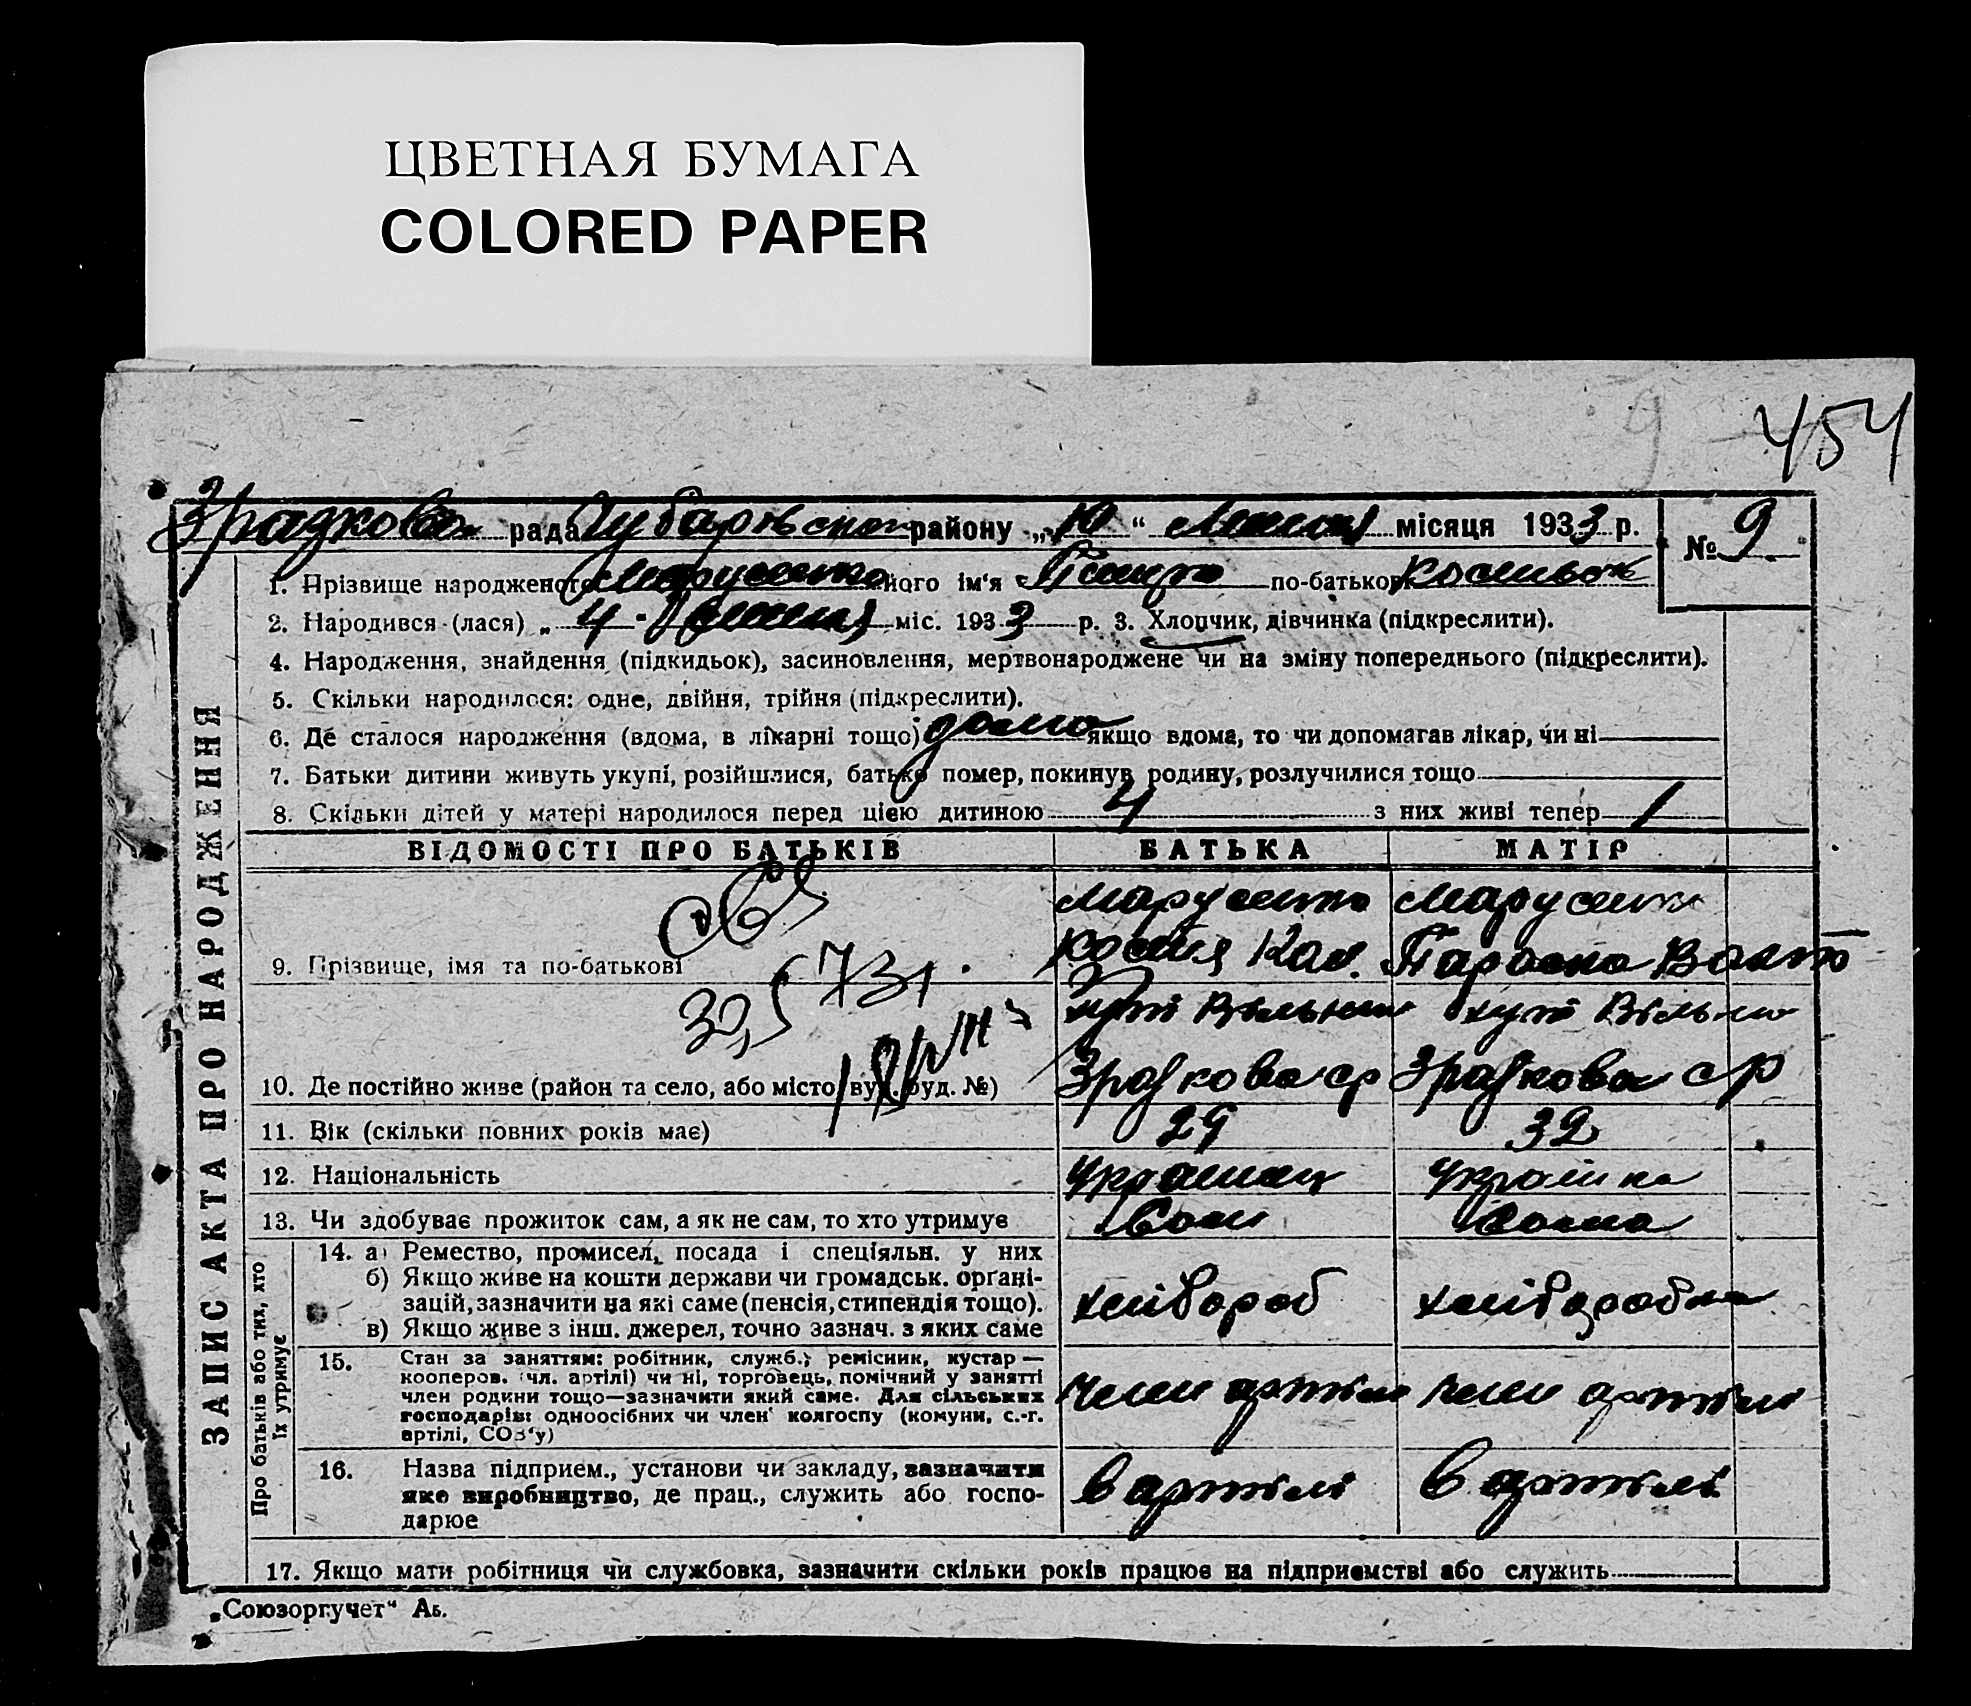 ЦВЕТНАЯ БУМАГА
COLORED PAPER
9
454
Зрадкова рада району „10“ місяця 1933 р. № 9
1. Прізвище народженого Марусенко його ім'я Петро по-батькові
2. Народився (лася) „4“ міс. 1933 р. 3. Хлопчик, дівчинка (підкреслити).
4. Народження, знайдення (підкидьок), засиновлення, мертвонароджене чи на зміну попереднього (підкреслити).
5. Скільки народилося: одне, двійня, трійня (підкреслити).
6. Де сталося народження (вдома, в лікарні тощо) дома якщо вдома, то чи допомагав лікар, чи ні
7. Батьки дитини живуть укупі, розійшлися, батько помер, покинув родину, розлучилися тощо
8. Скільки дітей у матері народилося перед цією дитиною 4 з них живі тепер 1
ЗАПИС АКТА ПРО НАРОДЖЕННЯ
ВІДОМОСТІ ПРО БАТЬКІВ БАТЬКА МАТІР
Марусенко Марусенко
9. Прізвище, імя та по-батькові Параска
хут Вільний хут Вільний
10. Де постійно живе (район та село, або місто, вул. буд. №) Зрадкова ср Зрадкова ср
11. Вік (скільки повних років має) 29 32
12. Національність Українец Українка
13. Чи здобуває прожиток сам, а як не сам, то хто утримує Сам Сама
Про батьків або тих, хто їх утримує
14. а) Ремество, промисел, посада і спеціяльн. у них
б) Якщо живе на кошти держави чи громадськ. органі-
зацій, зазначити на які саме (пенсія, стипендія тощо).
в) Якщо живе з інш. джерел, точно зазнач. з яких саме
хлібороб хліборобка
15. Стан за заняттям: робітник, служб., ремісник, кустар —
кооперов. (чл. артілі) чи ні, торговець, помічний у занятті
член родини тощо—зазначити який саме. Для сільських
господарів: одноосібних чи член колгоспу (комуни, с.-г.
артілі, СОЗ'у)
член артілі член артілі
16. Назва підприєм., установи чи закладу, зазначити
яке виробництво, де прац., служить або госпо-
дарює
в артілі в артілі
17. Якщо мати робітниця чи службовка, зазначити скільки років працює на підприємстві або служить
„Союзоргучет“ Аб.